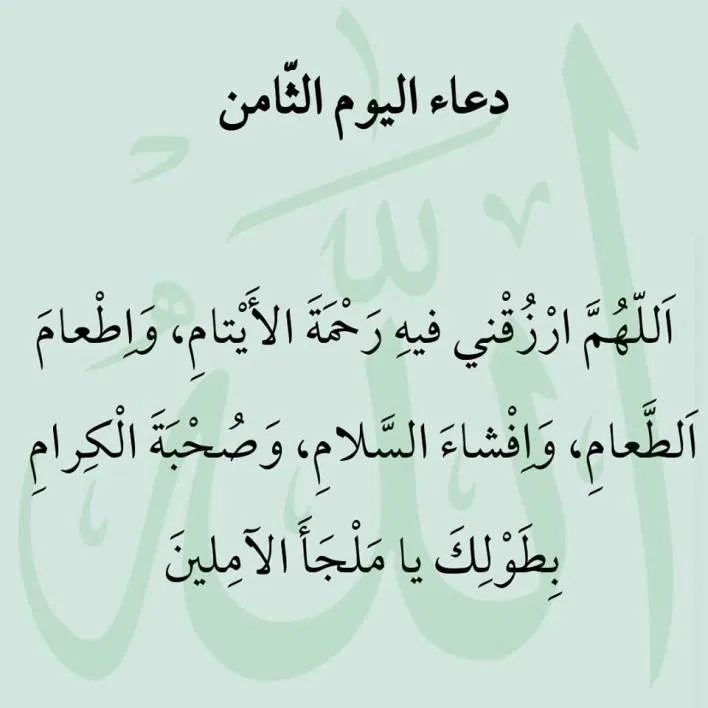 دعاء اليوم الثّامن
اَللّهُمَّ ارْزُقْني فيهِ رَحْمَةَ الأَيْتامِ، وَاِطْعامَ
اَلطَّعامِ، وَاِفْشاءَ السَّلامِ، وَصُحْبَةَ الْكِرامِ
بِطَوْلِكَ يا مَلْجَأَ الآمِلينَ
الله